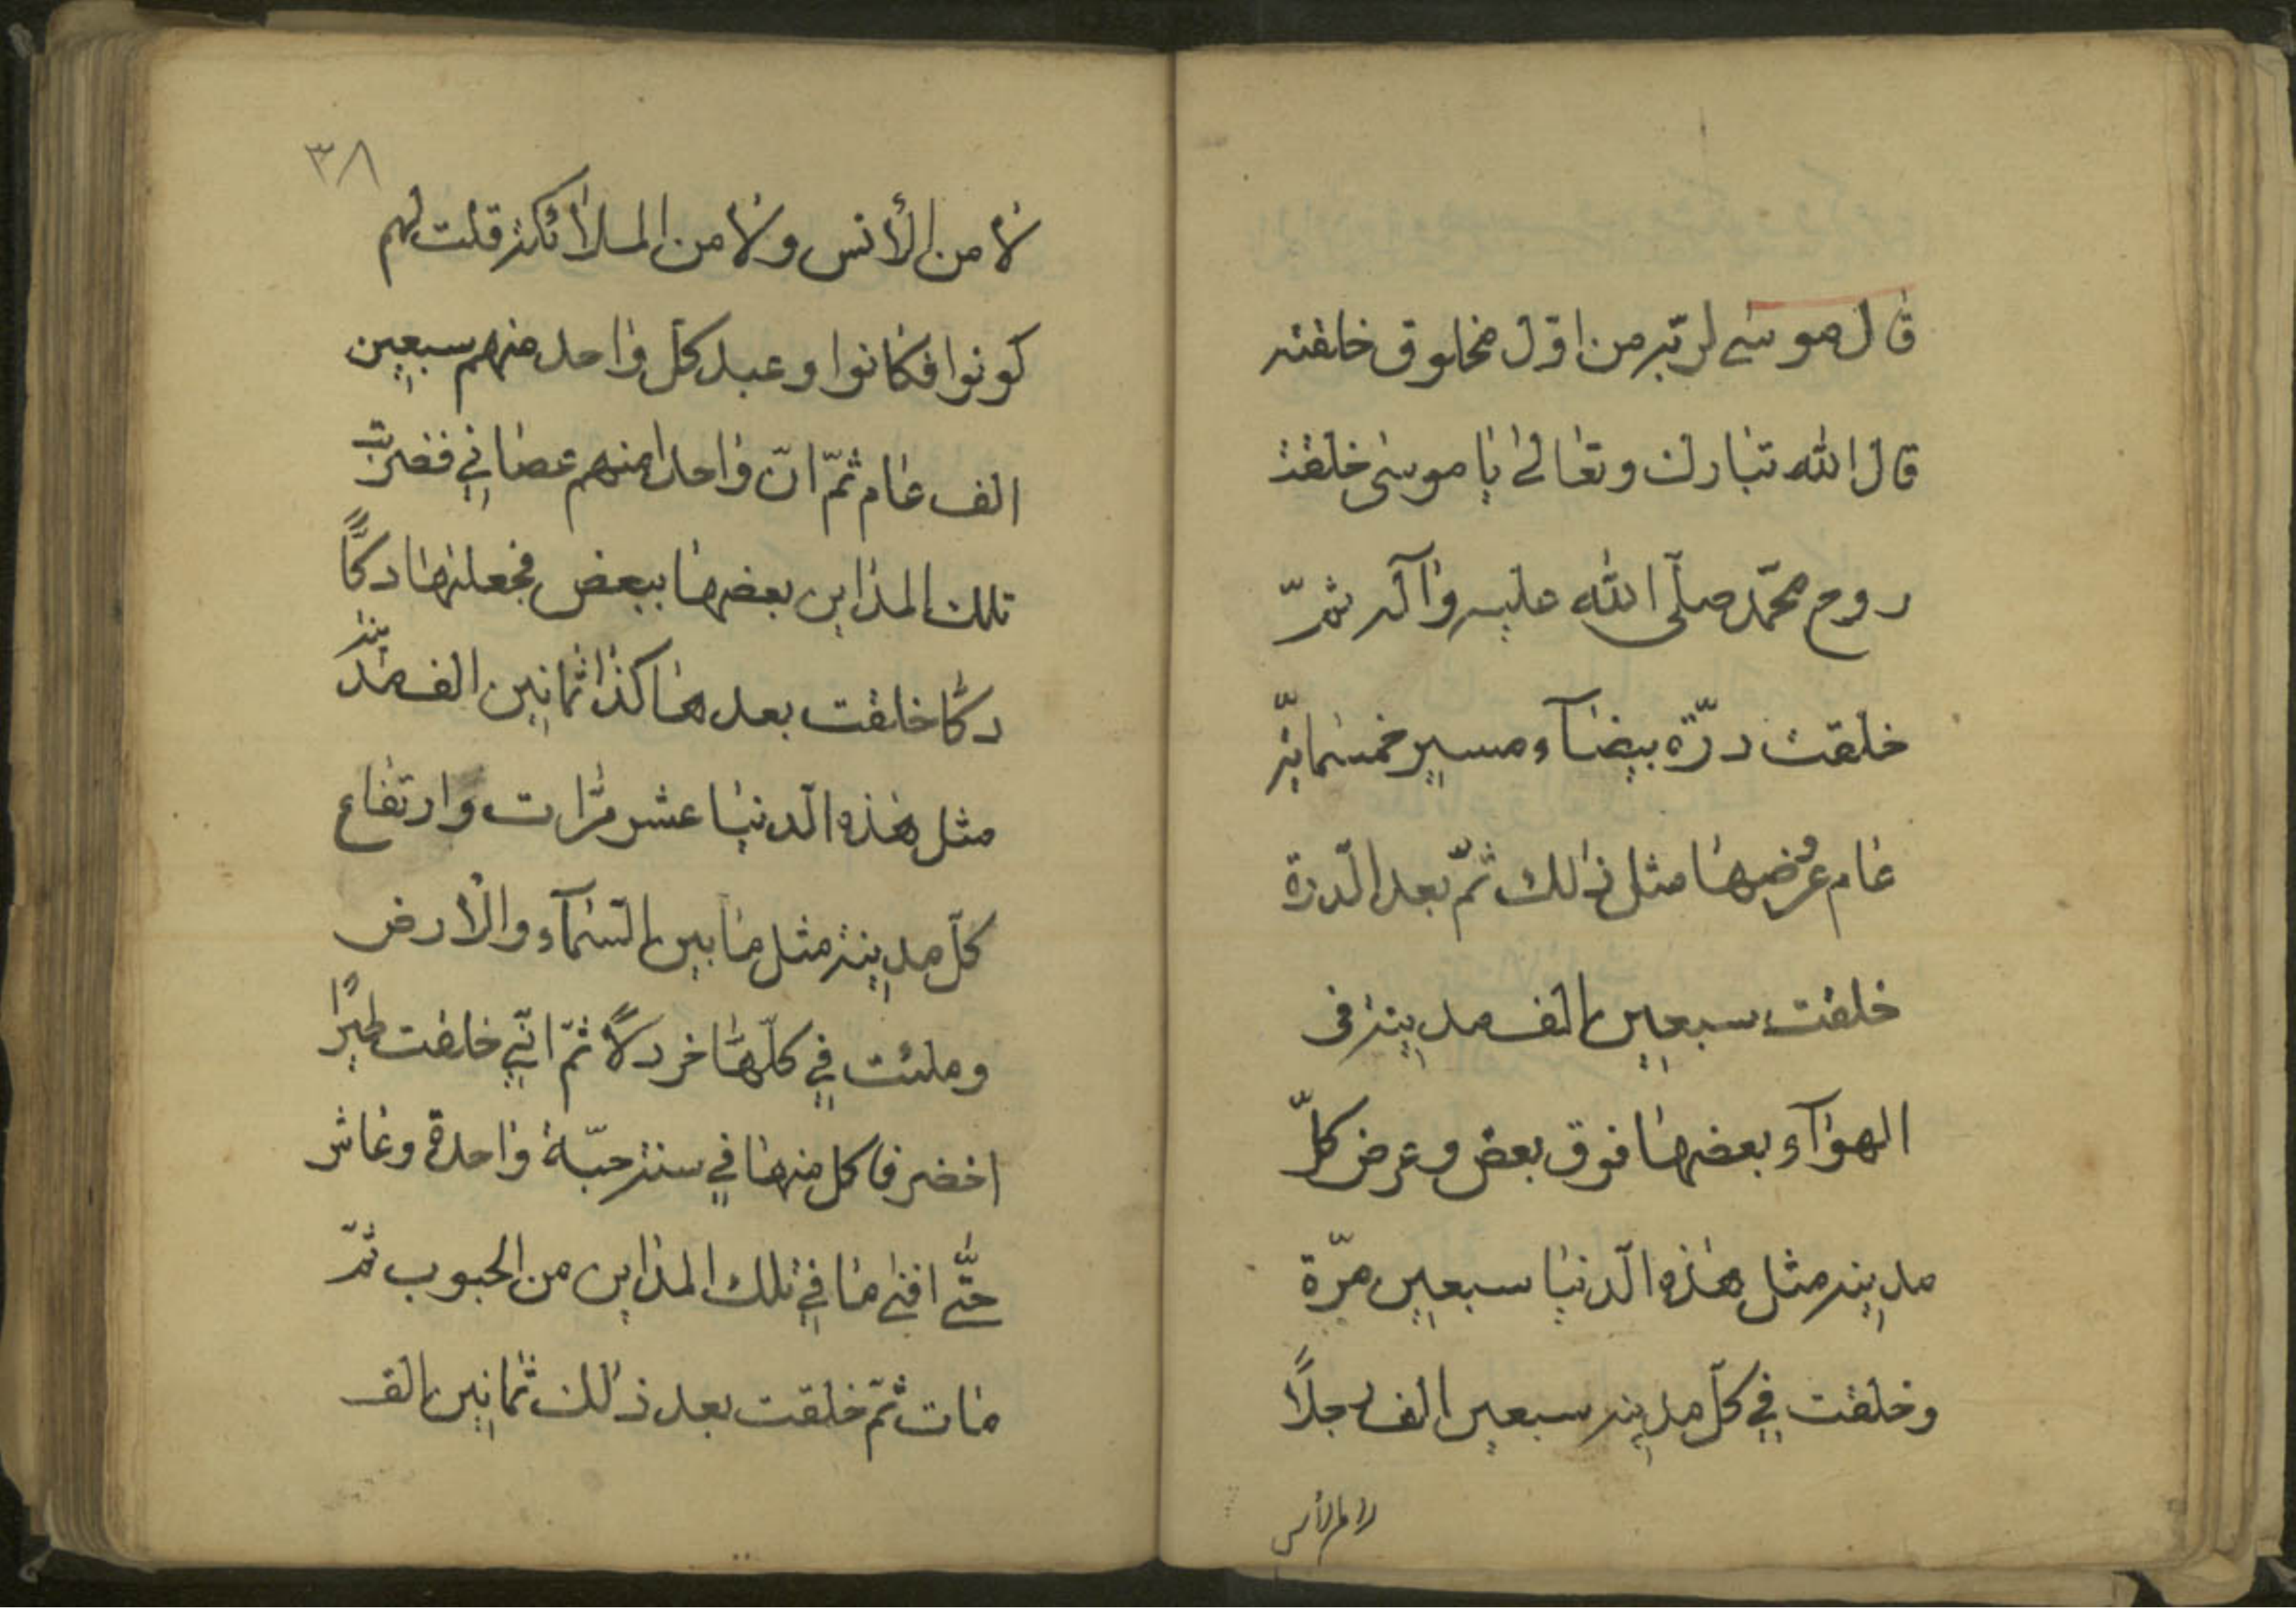 قال موسى لربّه من اوّل مخلوق خلقته
قال الله تبارك وتعالى يا موسى خلقت
روح محمّد صلّى الله عليه وآله ثمّ
خلقت درّة بيضآء مسير خمسمائة
عام عرضها مثل ذلك ثمّ بعد الدّرة
خلقت سبعين الف مدينة فى
الهوآء بعضها فوق بعض وعرض كلّ
مدينة مثل هذه الدّنيا سبعين مرّة
وخلقت في كلّ مدينة سبعين الف رجلاً
لا من الأنس
٣٨
لا من الأنس ولا من الملائكة قلت لهم
كونوا فكانوا وعبد كلّ واحد منهم سبعين
الف عام ثمّ انّ واحدا منهم عصاني فضربت
تلك المداين بعضها ببعض فجعلتها دكًّا
دكّا خلقت بعدها كذا ثمانين الف مدينة
مثل هذه الدّنيا عشر مرّات وارتفاع
كلّ مدينة مثل ما بين السّمآء والأرض
وملئت في كلّها خردلاً ثمّ انّي خلقت طيرًا
اخضر فاكل منها في سنة حبّة واحدة وعاش
حتّى افنى ما في تلك المداين من الحبوب ثمّ
مات ثمّ خلقت بعد ذلك ثمانين الف